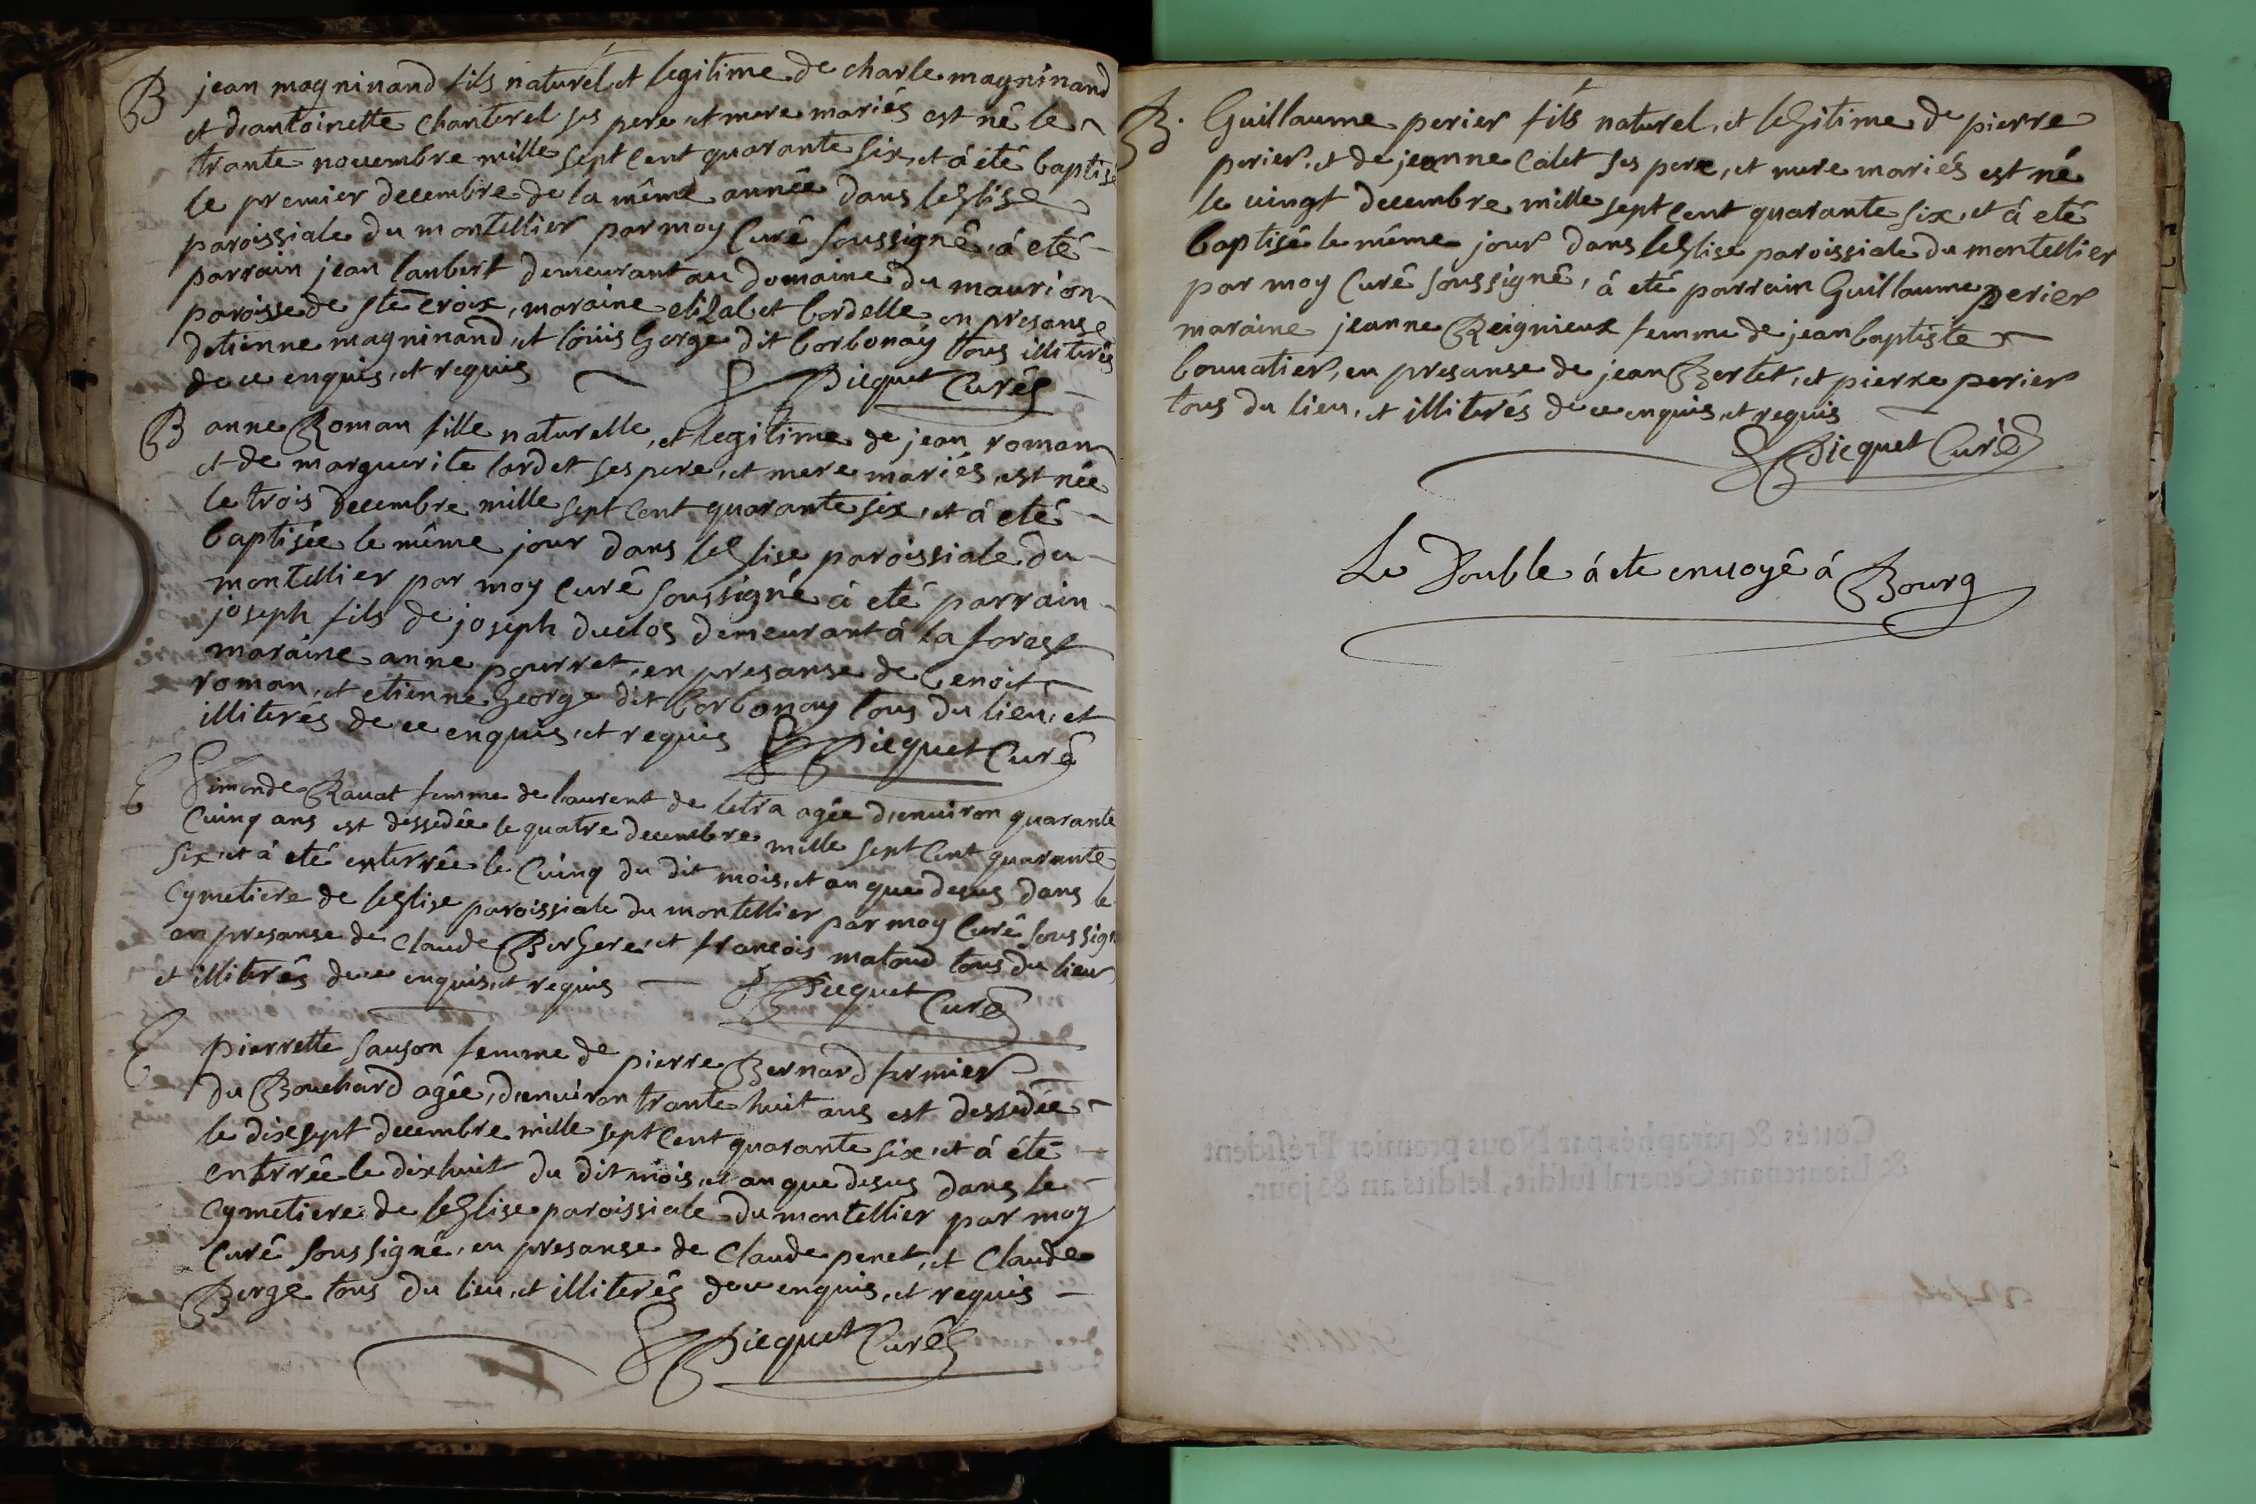 B jean magninand fils naturel et legitime de charle magninand
et d'antoinette chanterel ses pere et mere mariés est né le
trante nouembre mille sept cent quarante six, et á été baptisé
le premier decembre de la même année dans leglise
paroissiale du montellier par moy Curé soussigné, á eté
parrain jean lanbert demeurant au domaine du maurion
paroisse de ste croix, maraine elizabet bordelle en presanse
detienne magninand, et loüis George dit borbonay tous illiterés
de ce enquis, et requis
Picquet Curé
B anne Roman fille naturelle, et legitime de jean roman
et de marguerite lardet ses pere, et mere mariés, est née
le trois decembre mille sept cent quarante six, et á eté
baptisée le même jour dans leglise paroissiale du
montellier par moy Curé soussigné á eté parrain
joseph fils de joseph duclos demeurant á la forest
maraine anne pourret, en presanse de benoit
roman, et etienne George dit borbonay tous du lieu, et
illiterés de ce enquis, et requis
Picquet Curé
E Simonde Rauat femme de laurent de letra agée d'enuiron quarante
Cuinq ans est dessedée le quatre decembre mille sept cent quarante
six, et á eté enterrée le Cuinq du dit mois, et an que desus dans le
cymetiere de leglise paroissiale du montellier par moy Curé soussigné
en presanse de Claude Bergere, et francois matoud tous du lieu
et illiterés de ce enquis, et requis
Picquet Curé
E pierrette sauson femme de pierre Bernard fermier
du Bouchard agée, d'enuiron trante huit ans est dessedée
le dixsept decembre mille sept cent quarante six, et á été
enterrée le dixhuit du dit mois, et an que desus dans le
cymetiere de leglise paroissiale du montellier par moy
Curé soussigné, en presanse de Claude penet, et Claude
Berge tous du lieu, et illiterés de ce enquis, et requis
Picquet Curé
B. Guillaume perier fils naturel, et legitime de pierre
perier, et de jeanne Calet ses pere, et mere mariés est né
le uingt decembre mille sept cent quarante six, et á eté
baptisé le même jour dans leglise paroissiale du montellier
par moy Curé soussigné, á eté parrain Guillaume perier
maraine jeanne Reignieux femme de jean baptiste
bouuatier, en presanse de jean Bertet, et pierre perier
tous du lieu, et illiterés de ce enquis, et requis
Picquet Curé
Le Double á ete enuoyé á Bourg